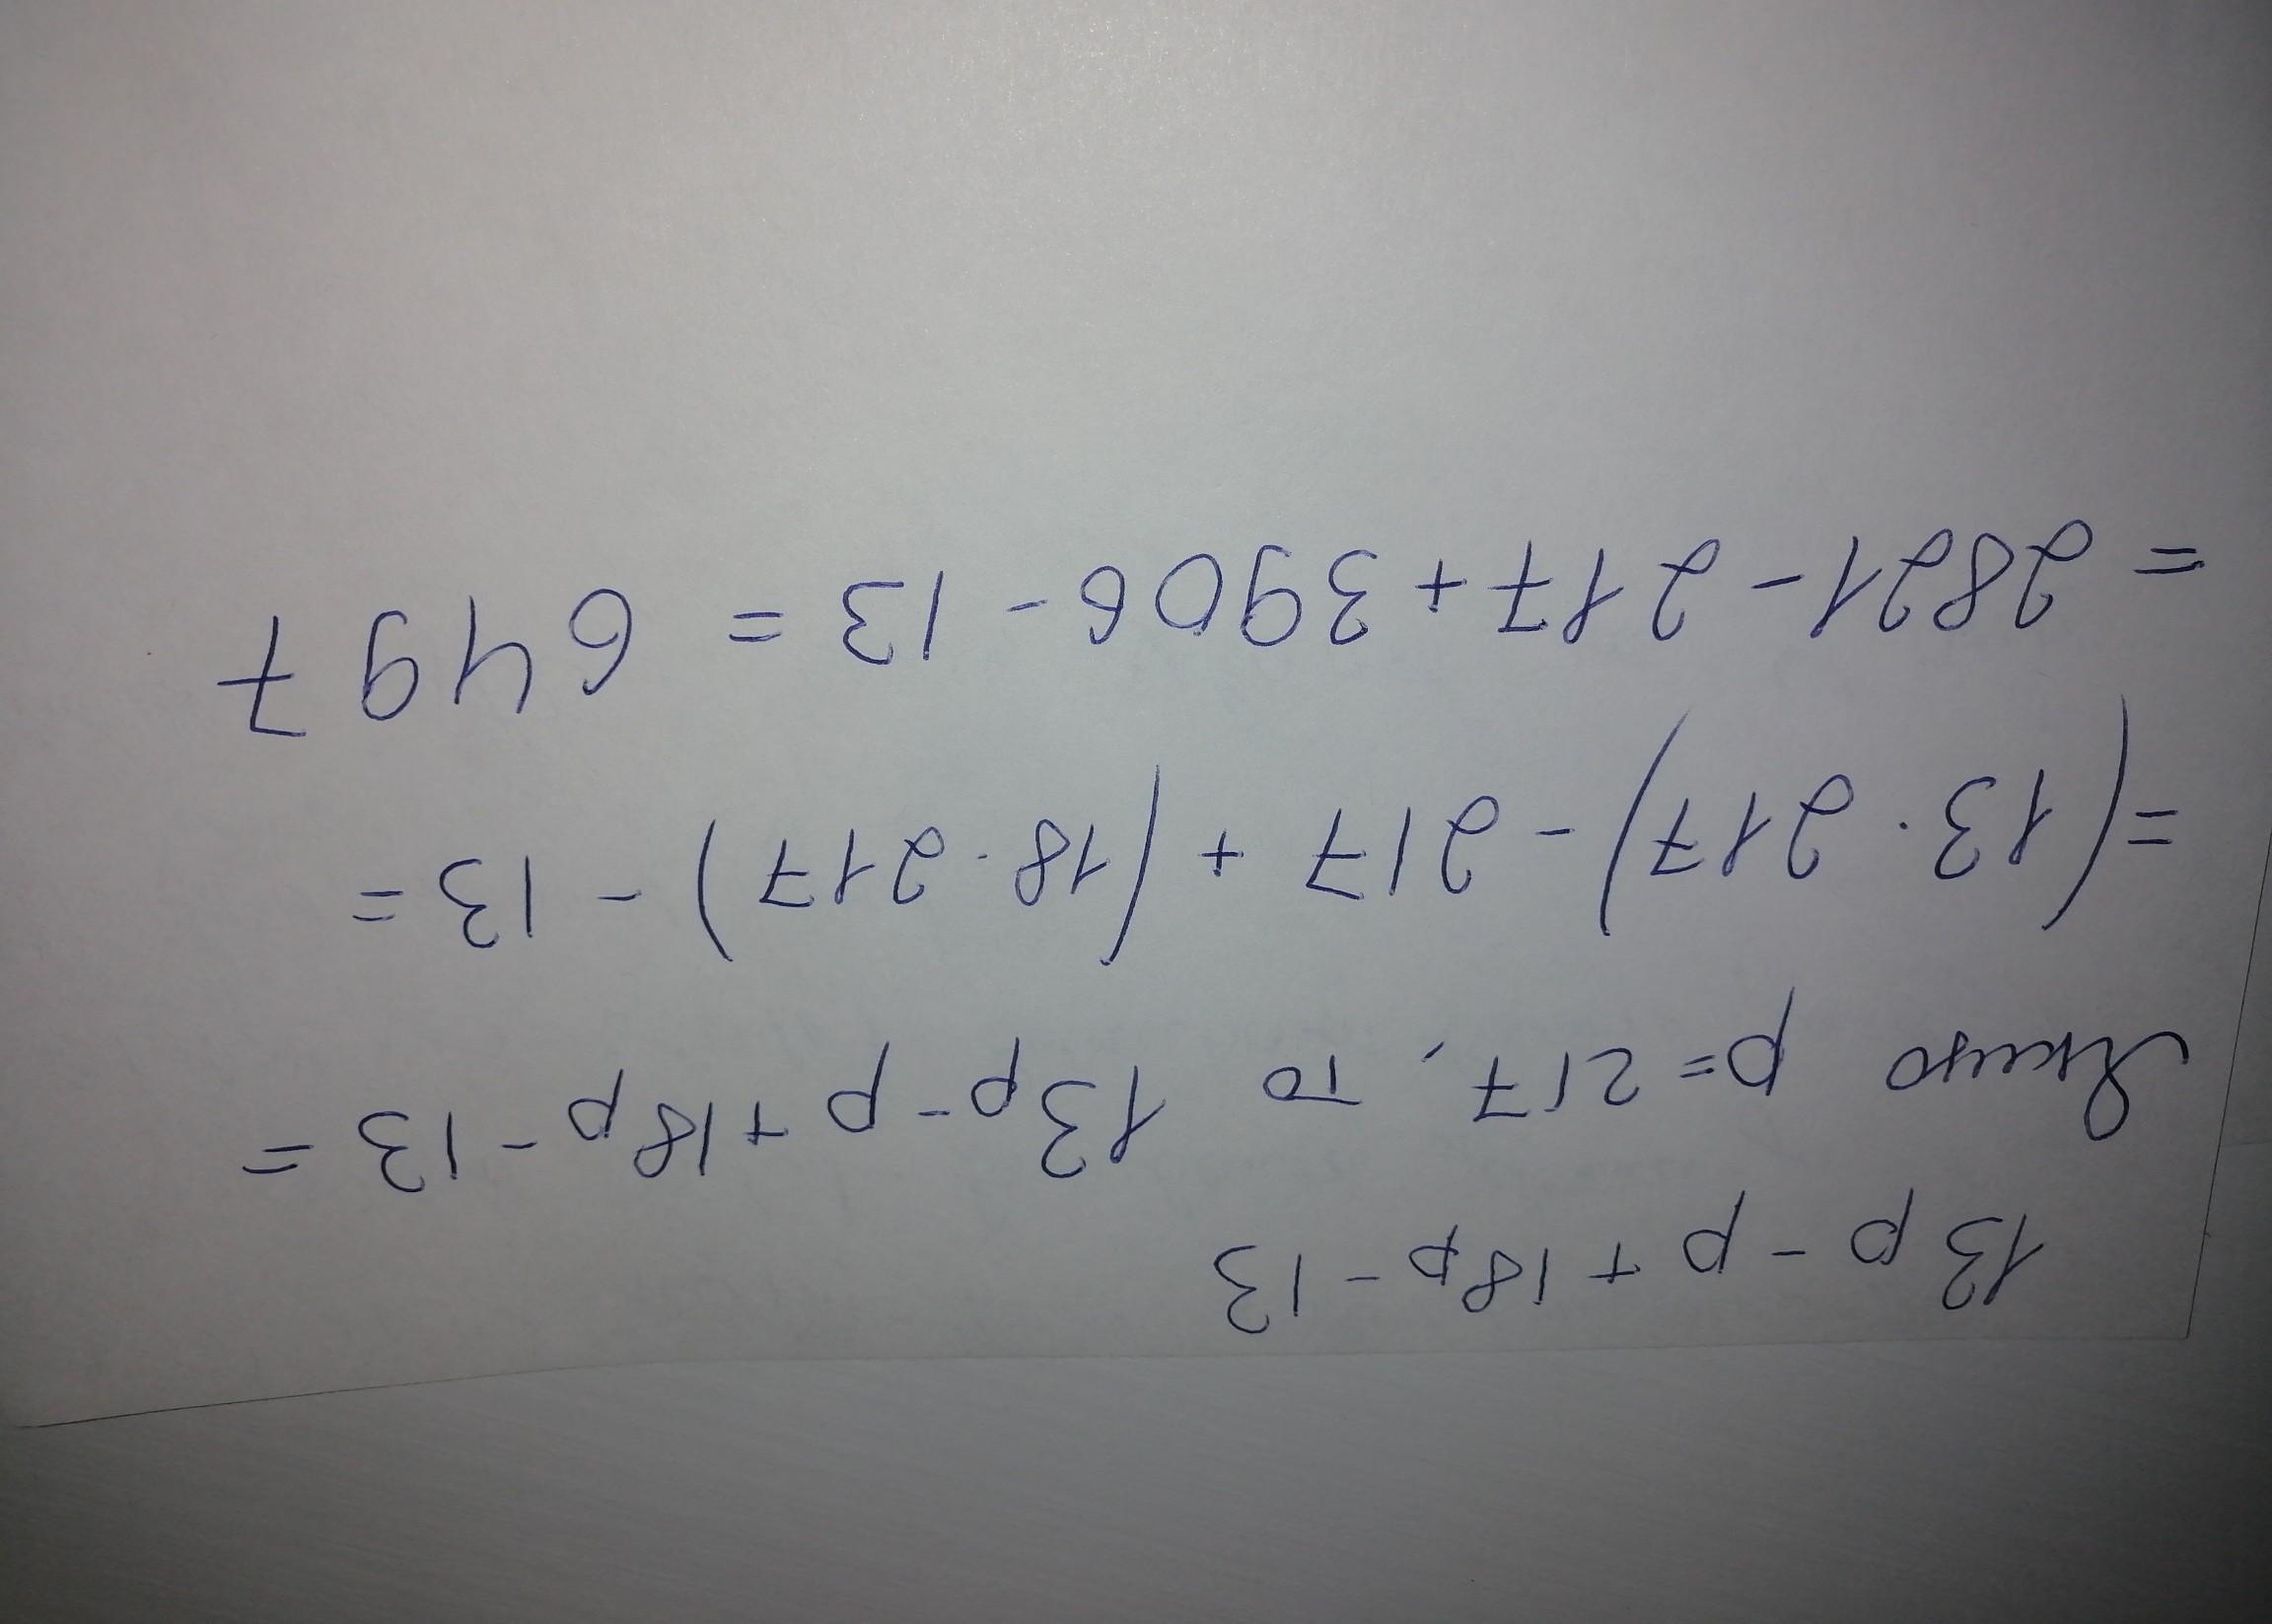 13p - p + 18p - 13
Якщо p = 217, то 13p - p + 18p - 13 =
= (13 · 217) - 217 + (18 · 217) - 13 =
= 2821 - 217 + 3906 - 13 = 6497